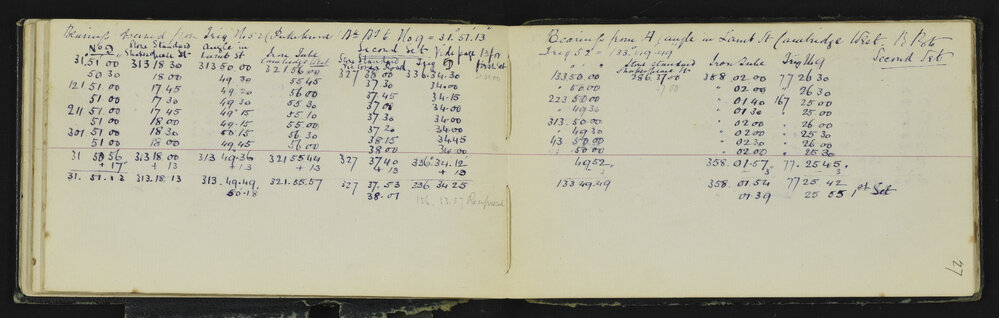 Bearings from Trig No 52 Pukekura Bk B16 No 9 = 31°51'.13"
Second Set Vide page 13 for first set
No 9 Store Standard Shakespeare St Angle in Lamb St Iron Tube Cambridge West Iron Standard Road Trig
31.51 00 313 18 30 313 50 00 321 56 00 327 38 00 336.34.30
50 30 18 00 49.30 55 45 37 30 34.00
121 51 00 17 45 49.20 56 00 37.45 34.15
51 00 17 30 49 30 55 30 37 08 34.00
211 51 00 17 45 49.15 55.10 37.30 34.00
51 00 18 00 49.15 55.00 37.20 34.00
301 51 00 18 30 50.15 56.30 38 15 34 45
51 00 18.00 49.45 56.00 38 00 34.00
31 50 56 313 18.00 313 49.36 321 55 44 327 37 40 336° 34.12
+ 17 + 13 + 13 + 13 + 13 + 13
31. 51.13 313.18.13 313.49.49 321.55.57 327 37.53 336 34 25
50.18 38.01 156. 33.57 Reciprocal
Bearings from A, angle in Lamb St Cambridge West B B16
Trig 52 = 133°.49.49 Second Set
Store Standard Shakespeare St Iron Tube Trig No 9
133 50.00 286.37.00 358 02 00 77 26 30
" 50.00 " 02.00 " 26 30
223 50 00 " 01 40 167 25 00
" 49 30 " 01.30 " 25 00
313. 50 00 " 02 00 " 26 00
" 49 30 " 02 00 " 25 30
43 50 00 " 02 30 " 26 00
" 50 00 " 02 00 " 25 30
49 52 358. 01.57 77. 25 45
3 3
133 49.49 358. 01 54 77 25 42
" 01 39 25 55 1st Set
27